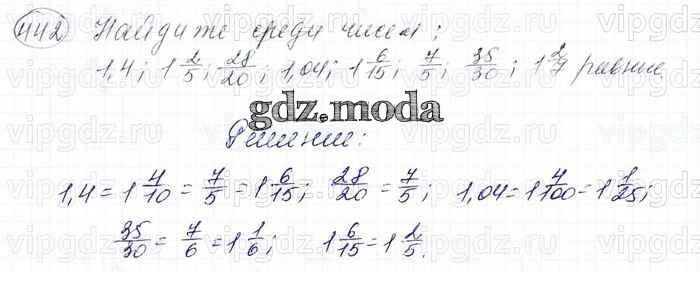 442 Найдите среди чисел:
1,4; 1 2/5; 28/20; 1,04; 1 6/15; 7/5; 35/30; 1 2/7 равные
gdz.moda
Решение:
1,4 = 1 4/10 = 7/5 = 1 6/15; 28/20 = 7/5; 1,04 = 1 4/100 = 1 1/25;
35/30 = 7/6 = 1 1/6; 1 6/15 = 1 2/5.